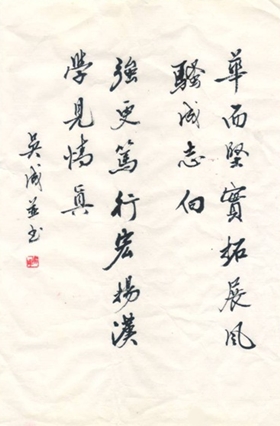 華而堅實拓展風
騷成志向
強更篤行宏揚漢
學見情真
吳成並书